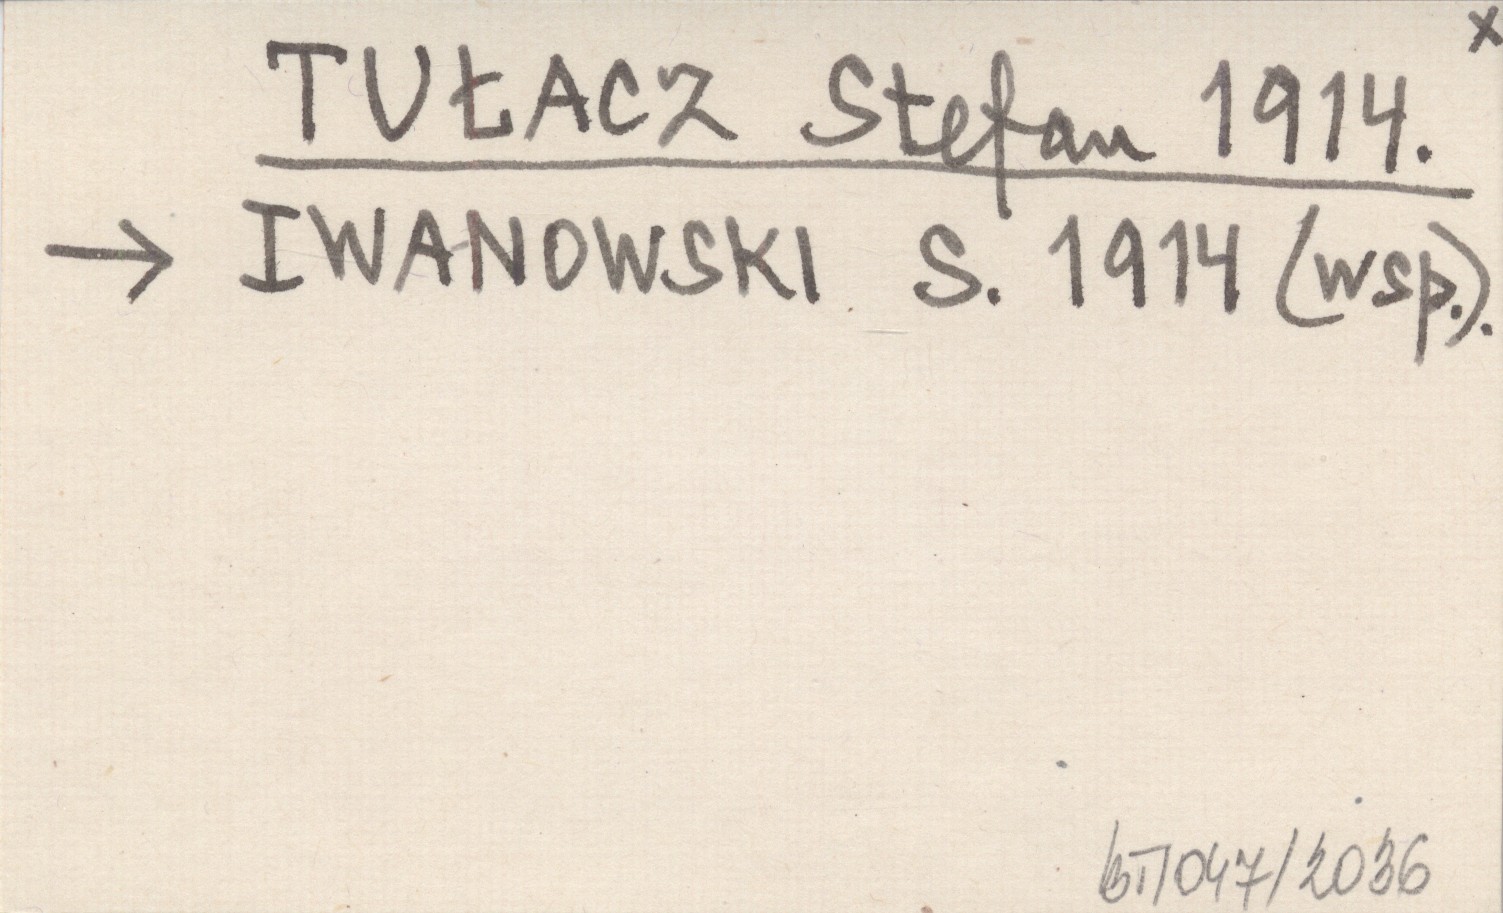 x
TUŁACZ Stefan 1914.
→ IWANOWSKI S. 1914 (wsp.).
/047/2036